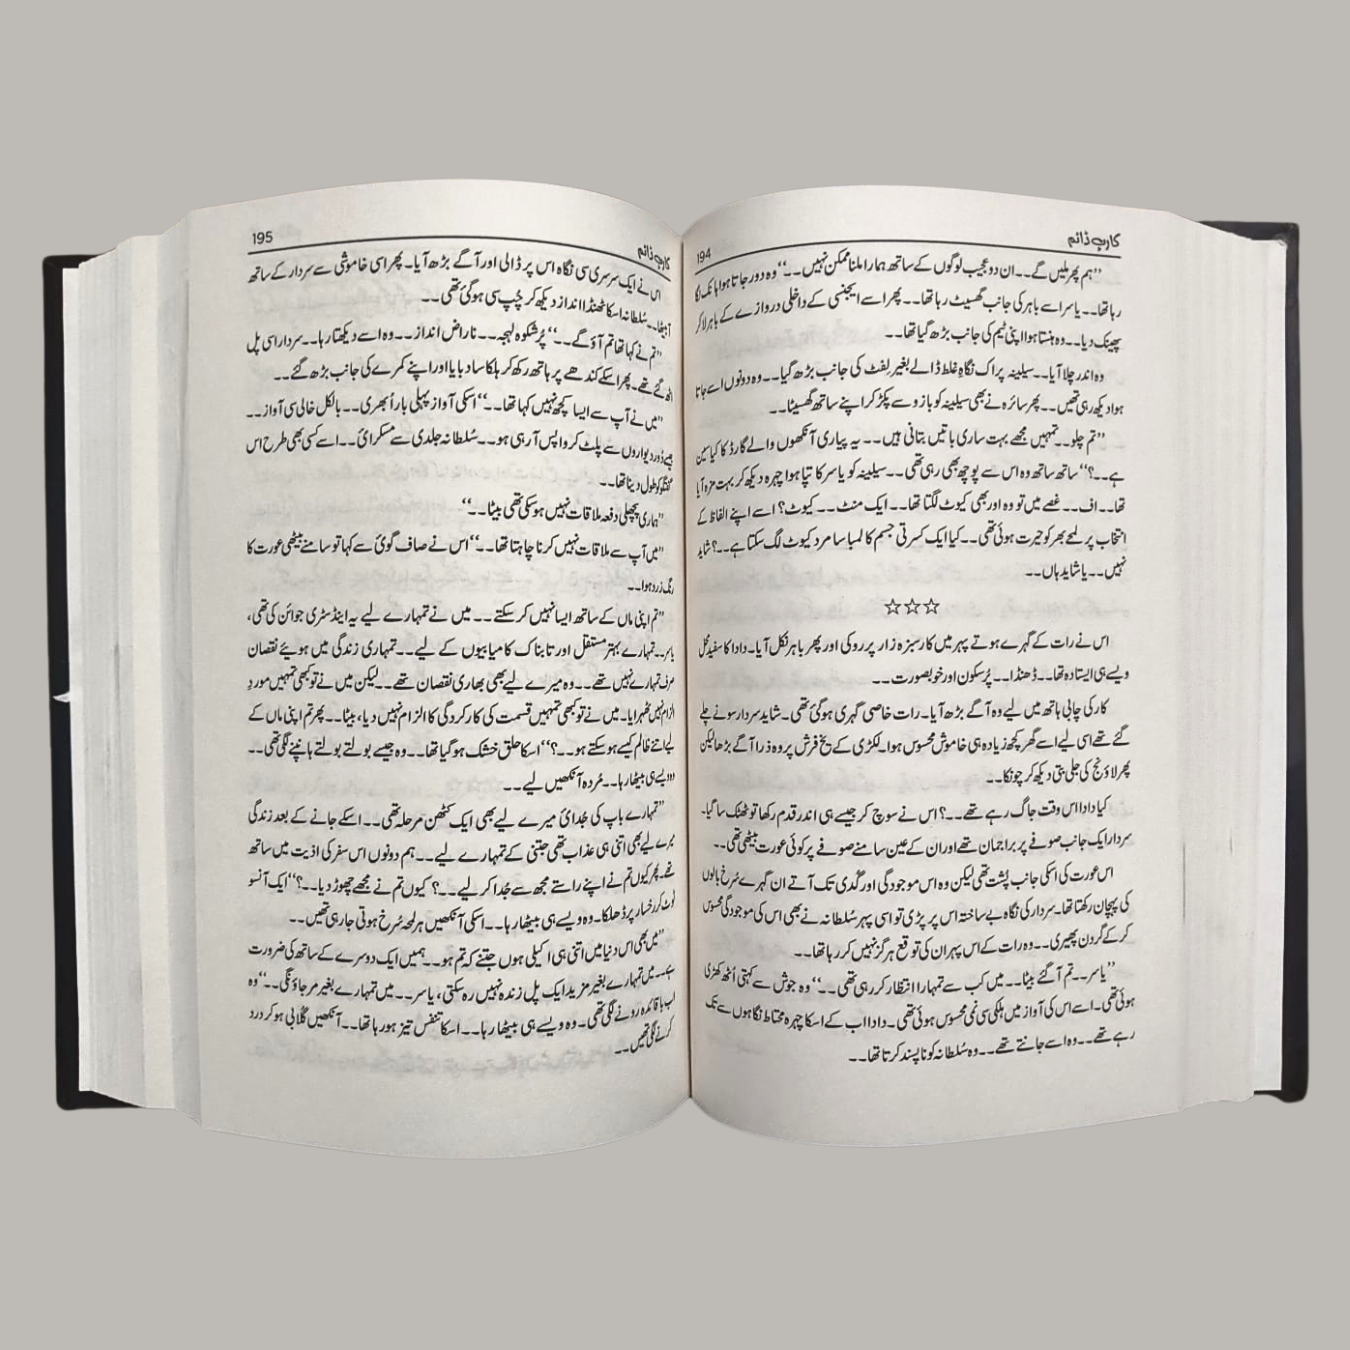 کاربِ ذائم
194
”ہم پھر ملیں گے۔۔ان دو عجیب لوگوں کے ساتھ ہمارا ملنا ممکن نہیں۔۔“وہ دور جاتا ہوا ہانک لگا
رہا تھا۔۔یاسر اسے باہر کی جانب گھسیٹ رہا تھا۔۔پھر اسے ایجنسی کے داخلی دروازے کے باہر لا کر
پھینک دیا۔۔وہ ہنستا ہوا اپنی ٹیم کی جانب بڑھ گیا تھا۔۔
وہ اندر چلا آیا۔۔سیلینہ پر اک نگاہِ غلط ڈالے بغیر لفٹ کی جانب بڑھ گیا۔۔وہ دونوں اسے جاتا
ہوا دیکھ رہی تھیں۔۔پھر سائرہ نے بھی سیلینہ کو بازو سے پکڑ کر اپنے ساتھ گھسیٹا۔۔
”تم چلو۔۔تمہیں مجھے بہت ساری باتیں بتانی ہیں۔۔یہ پیاری آنکھوں والے گارڈ کا کیا سین
ہے۔۔؟“ساتھ ساتھ وہ اس سے پوچھ بھی رہی تھی۔۔سیلینہ کو یاسر کا تپا ہوا چہرہ دیکھ کر بہت مزہ آیا
تھا۔۔اف۔۔غصے میں تو وہ اور بھی کیوٹ لگتا تھا۔۔ایک منٹ۔۔کیوٹ؟اسے اپنے الفاظ کے
انتخاب پر لمحے بھر کو حیرت ہوئی تھی۔۔کیا ایک کسرتی جسم کا لمبا سا مرد کیوٹ لگ سکتا ہے۔۔؟شاید
نہیں۔۔یا شاید ہاں۔۔
☆☆☆
اس نے رات کے گہرے ہوتے پہر میں کار سبزہ زار پر روکی اور پھر باہر نکل آیا۔دادا کا سفید محل
ویسے ہی ایستادہ تھا۔۔ڈھنڈا۔۔پُرسکون اور خوبصورت۔۔
کار کی چابی ہاتھ میں لیے وہ آگے بڑھ آیا۔رات خاصی گہری ہوگئ تھی۔شاید سردار سونے چلے
گئے تھے اسی لیے اسے گھر کچھ زیادہ ہی خاموش محسوس ہوا۔لکڑی کے یخ فرش پر وہ ذرا آگے بڑھا لیکن
پھر لاؤنج کی جلی بتی دیکھ کر چونکا۔۔
کیا دادا اس وقت جاگ رہے تھے۔۔؟اس نے سوچ کر جیسے ہی اندر قدم رکھا تو ٹھٹک سا گیا۔
سردار ایک جانب صوفے پر براجمان تھے اور ان کے عین سامنے صوفے پر کوئی عورت بیٹھی تھی۔۔
اس عورت کی اسکی جانب پشت تھی لیکن وہ اس موجودگی اور گدی تک آتے ان گہرے سُرخ بالوں
کی پہچان رکھتا تھا۔سردار کی نگاہ بے ساختہ اس پر پڑی تو اسی پہر سُلطانہ نے بھی اس کی موجودگی محسوس
کر کے گردن پھیری۔۔وہ رات کے اس پہر ان کی توقع ہرگز نہیں کر رہا تھا۔۔
”یاسر۔۔تم آگئے بیٹا۔۔میں کب سے تمہارا انتظار کر رہی تھی۔۔“وہ جوش سے کہتی اُٹھ کھڑی
ہوئی تھی۔اسے اس کی آواز میں ہلکی سی نمی محسوس ہوئی تھی۔دادا اب کے اسکا چہرہ محتاط نگاہوں سے تک
رہے تھے۔۔وہ اسے جانتے تھے۔۔وہ سُلطانہ کو ناپسند کرتا تھا۔۔
کاربِ ذائم
195
اس نے ایک سرسری سی نگاہ اس پر ڈالی اور آگے بڑھ آیا۔پھر اسی خاموشی سے سردار کے ساتھ
آ بیٹھا۔۔سُلطانہ اسکا ٹھنڈا انداز دیکھ کر چُپ سی ہوگئ تھی۔۔
”تم نے کہا تھا تم آؤ گے۔۔“پُرشکوہ لہجہ۔۔ناراض انداز۔۔وہ اسے دیکھتا رہا۔۔سردار اسی پل
اٹھ گئے تھے۔پھر اسکے کندھے پر ہاتھ رکھ کر ہلکا سا دبایا اور اپنے کمرے کی جانب بڑھ گئے۔۔
”میں نے آپ سے ایسا کچھ نہیں کہا تھا۔۔“اسکی آواز پہلی بار اُبھری۔۔بالکل خالی سی آواز۔۔
جیسے دُور دیواروں سے پلٹ کر واپس آرہی ہو۔۔سُلطانہ جلدی سے مسکرائ۔۔اسے کسی بھی طرح اس
گفتگو کو طول دینا تھا۔۔
”ہماری پچھلی دفعہ ملاقات نہیں ہوسکی تھی بیٹا۔۔“
”میں آپ سے ملاقات نہیں کرنا چاہتا تھا۔۔“اس نے صاف گوئ سے کہا تو سامنے بیٹھی عورت کا
رنگ زرد ہوا۔۔
”تم اپنی ماں کے ساتھ ایسا نہیں کرسکتے۔۔میں نے تمہارے لیے یہ اینڈسٹری جوائن کی تھی،
یاسر۔۔تمہارے بہتر مستقل اور تابناک کامیابیوں کے لیے۔۔تمہاری زندگی میں ہوئیے نقصان
صرف تمہارے نہیں تھے۔۔وہ میرے لیے بھی بھاری نقصان تھے۔۔لیکن میں نے تو کبھی تمہیں موردِ
الزام نہیں ٹھہرایا۔میں نے تو کبھی تمہیں قسمت کی کارکردگی کا الزام نہیں دیا، بیٹا۔۔پھر تم اپنی ماں کے
لیے اتنے ظالم کیسے ہوسکتے ہو۔۔؟“اسکا حلق خشک ہوگیا تھا۔۔وہ جیسے بولتے بولتے ہانپنے لگی تھی۔۔
وہ ویسے ہی بیٹھا رہا۔۔مُردہ آنکھیں لیے۔۔
”تمہارے باپ کی جُدائ میرے لیے بھی ایک کٹھن مرحلہ تھی۔۔اسکے جانے کے بعد زندگی
میرے لیے بھی اتنی ہی عذاب تھی جتنی کے تمہارے لیے۔۔ہم دونوں اس سفر کی اذیت میں ساتھ
تھے۔پھر کیوں تم نے اپنے راستے مجھ سے جُدا کر لیے۔۔؟ کیوں تم نے مجھے چھوڑ دیا۔۔؟“ایک آنسو
ٹوٹ کر رخسار پر ڈھلکا۔وہ ویسے ہی بیٹھا رہا۔۔اسکی آنکھیں ہر لمحہ سُرخ ہوتی جا رہی تھیں۔۔
”میں بھی اس دنیا میں اتنی ہی اکیلی ہوں جتنے کہ تم ہو۔۔ہمیں ایک دوسرے کے ساتھ کی ضرورت
ہے۔۔میں تمہارے بغیر مزید ایک پل زندہ نہیں رہ سکتی، یاسر۔۔میں تمہارے بغیر مر جاؤنگی۔۔“وہ
اب باقائدہ رونے لگی تھی۔وہ ویسے ہی بیٹھا رہا۔۔اسکا تنفس تیز ہورہا تھا۔۔آنکھیں گُلابی ہوکر درد
کرنے لگی تھیں۔۔